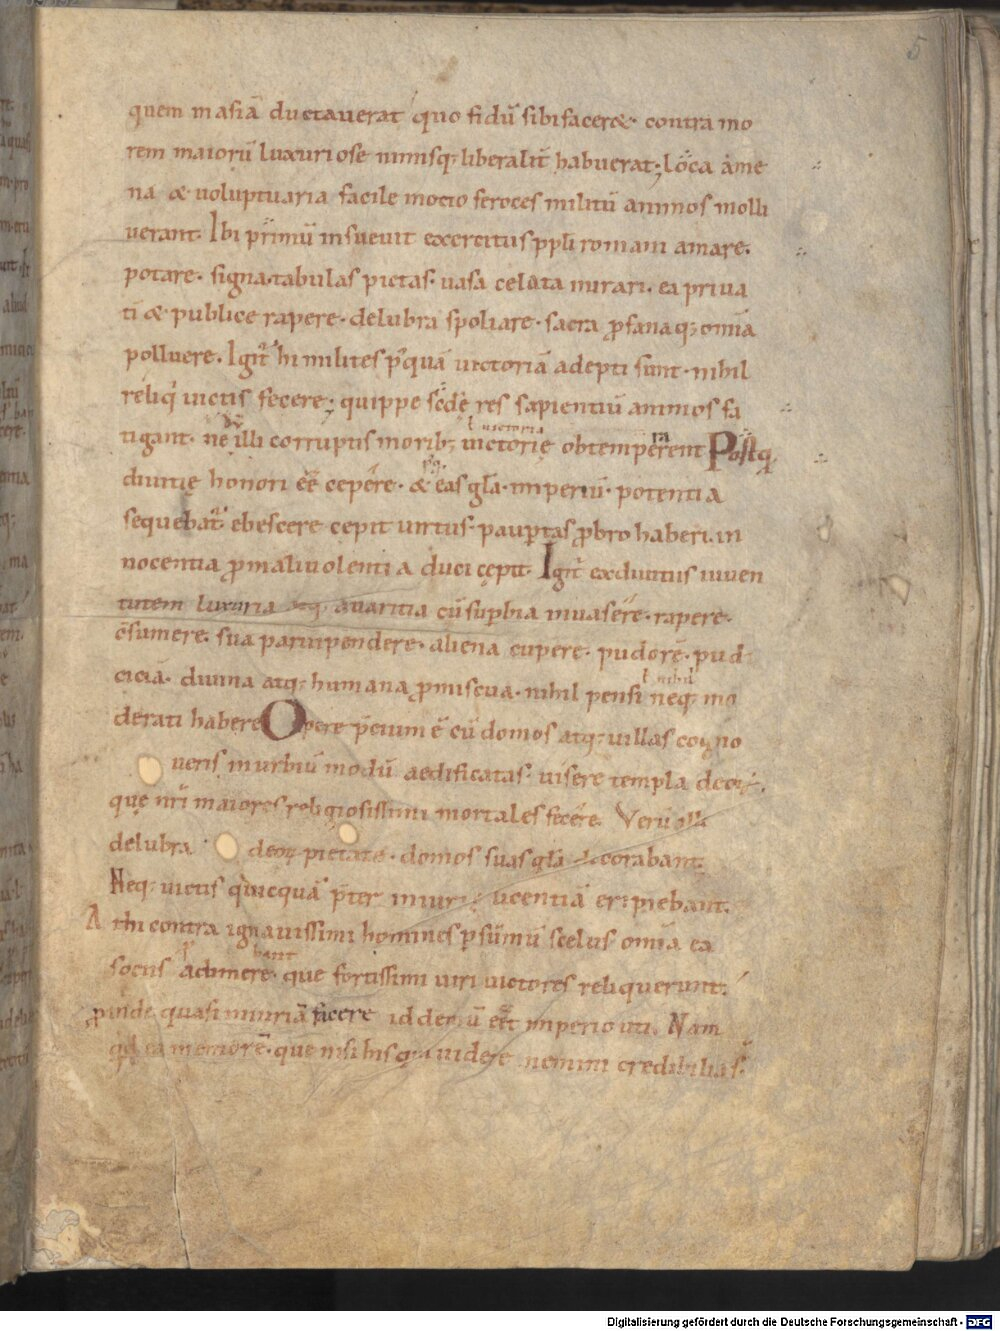 5
quem in asiā ductauerat quo fidū sibi facer&· contra mo
rem maiorū luxuriose nimisq; liberalit̄ habuerat; Loca ame
na & uoluptuaria facile inocio feroces militū animos molli
uerant. Ibi primū insueuit exercitus ppl̄i romani amare.
potare. signa. tabulas pictas. uasa celata mirari. ea priua
ti & publice rapere. delubra spoliare. sacra ꝓfanaq; omīa
polluere. Igit̄ hi milites p̄quā uictoriā adepti sunt. nihil
reliqi uictis fecere; quippe sc̄dę res sapientiū animos fa
tigant. ne illi corruptis morib; uictorię obtemperent Postq̄
diuitię honori eē̄ cepēre. & eas gl̄a. imperiū. potentia
sequebat̄ ebescere cepit uirtus. paup̱tas ꝓbro haberi. in
nocentia ꝓ maliuolentia duci cępit. Igit̄ exdiuitiis iuuen
tutem luxuria atq; auaritia cū sup̱bia inuasēre. rapere.
cōsumere. sua paruipendere. aliena cupere. pudorē. pudi
ł nihil
ciciā. diuina atq; humana ꝓmiscua. nihil pensi neq; mo
derati habere Opere p̄cium ē cū domos atq; uillas cogno
ueris inurbiū modū aedificatas. uisere templa deoꝝ.
quę nr̄i maiores religiosissimi mortales fecēre. Verū illi
delubra deoꝝ pietate. domos suas gl̄a decorabant.
Neq; uictis quicquā p̄ter iniurię licentiā eripiebant.
At hi contra ignauissimi homines p̱ sūmū scelus omīa ea
sociis adimere. que fortissimi uiri uictores reliquerunt.
ꝓinde quasi iniuriā facere id demū eēt imperio uti. Nam
qd ea memorē. que nisi his qui uidere nemini credibilia s̄.
Digitalisierung gefördert durch die Deutsche Forschungsgemeinschaft - DFG